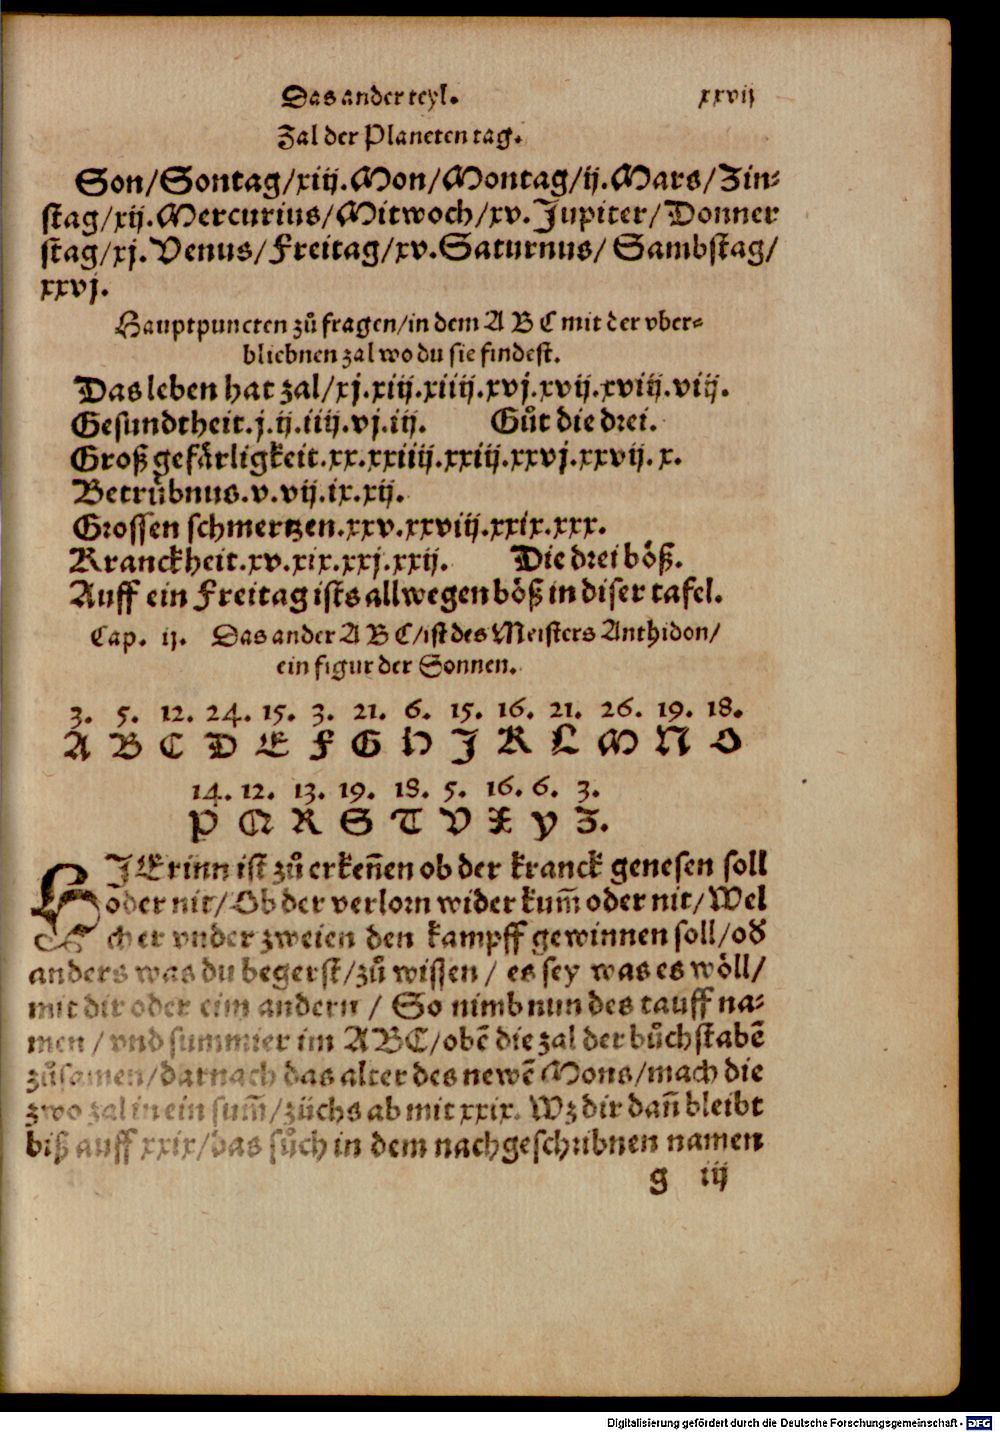 Das ander teyl. xxvij
Zal der Planeten tag.
Son/Sontag/xiij.Mon/Montag/ij.Mars/Zin-
stag/xij.Mercurius/Mitwoch/xv.Jupiter/Donner
stag/xj.Venus/Freitag/xv.Saturnus/Sambstag/
xxvj.
Hauptpuncten zů fragen/in dem A B C mit der vber-
bliebnen zal wo du sie findest.
Das leben hat zal/xj.xiij.xiiij.xvj.xvij.xviij.viij.
Gesundtheit.j.ij.iiij.vj.iij. Gůt die drei.
Groß gefärligkeit.xx.xxiiij.xxiij.xxvj.xxvij.x.
Betrůbnus.v.vij.ix.xij.
Grossen schmertzen.xxv.xxviij.xxix.xxx.
Kranckheit.xv.xix.xxj.xxij. Die drei böß.
Auff ein Freitag ists allwegen böß in diser tafel.
Cap. ij. Das ander A B C/ist des Meisters Anthidon/
ein figur der Sonnen.
3. 5. 12. 24. 15. 3. 21. 6. 15. 16. 21. 26. 19. 18.
A B C D E F G H J K L M N O
14. 12. 13. 19. 18. 5. 16. 6. 3.
P Q R S T V X Y Z.
HJErinn ist zů erkeñen ob der kranck genesen soll
oder nit/Ob der verlorn wider kum̃ oder nit/Wel
cher vnder zweien den kampff gewinnen soll/oď
anders was du begerst/zů wissen / es sey was es wöll/
mit dir oder eim andern / So nimb nun des tauff na-
men / vnd summier im ABC/obē die zal der bůchstabē
zůsamen/darnach das alter des newē Mons/mach die
zwo zal in ein sum̃/züchs ab mit xxix. Wz dir dañ bleibt
biß auff xxix/das sůch in dem nachgeschribnen namen
g iij
Digitalisierung gefördert durch die Deutsche Forschungsgemeinschaft - DFG